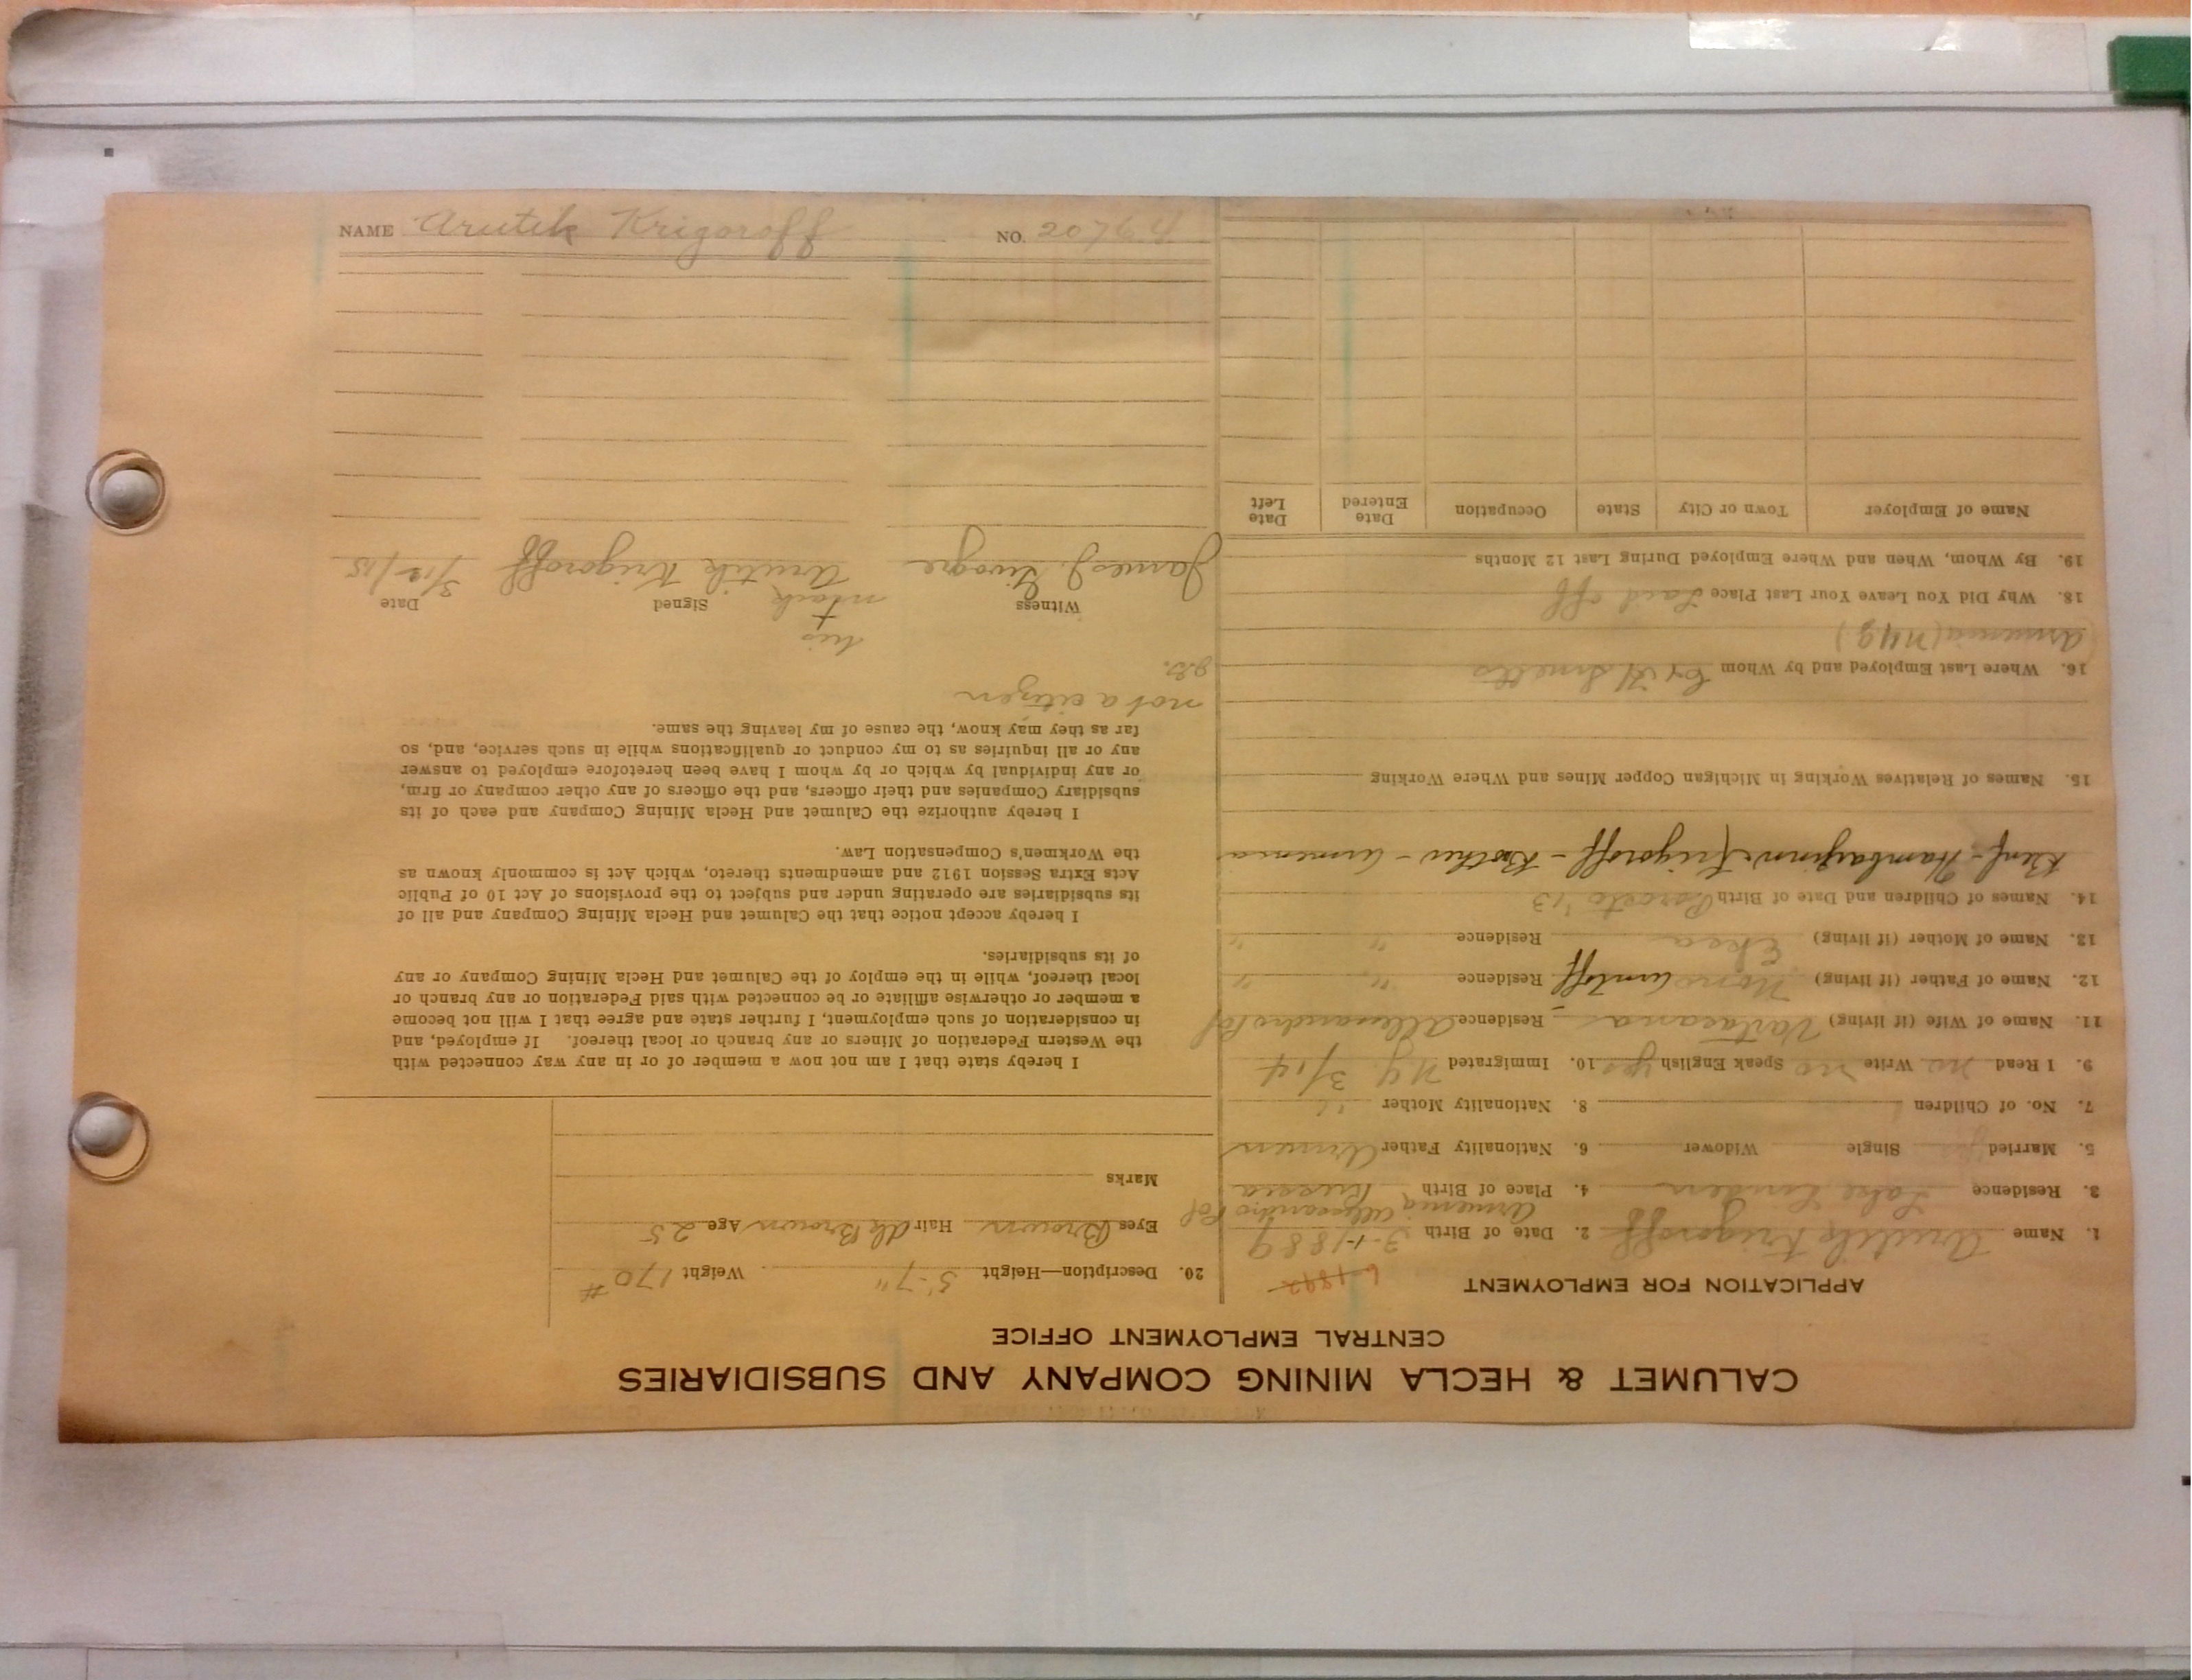 CALUMET & HECLA MINING COMPANY AND SUBSIDIARIES
CENTRAL EMPLOYMENT OFFICE
APPLICATION FOR EMPLOYMENT
1. Name Arutik Krigoroff 2. Date of Birth 3-1-1889
Armenia
3. Residence Lake Linden 4. Place of Birth Russia
5. Married yes Single Widower 6. Nationality Father Armen
7. No. of Children 1 8. Nationality Mother "
9. I Read no Write no Speak English yes 10. Immigrated N.Y. 3/14
11. Name of Wife (if living) Residence
12. Name of Father (if living) Residence " "
13. Name of Mother (if living) Residence " "
14. Names of Children and Date of Birth '13
Krigoroff - Brother - Armenia
15. Names of Relatives Working in Michigan Copper Mines and Where Working
16. Where Last Employed and by Whom
18. Why Did You Leave Your Last Place Laid off
19. By Whom, When and Where Employed During Last 12 Months
Name of Employer Town or City State Occupation Date Entered Date Left
20. Description—Height 5'-7" Weight 170 #
Eyes Brown Hair dk Brown Age 25
Marks
I hereby state that I am not now a member of or in any way connected with
the Western Federation of Miners or any branch or local thereof. If employed, and
in consideration of such employment, I further state and agree that I will not become
a member or otherwise affiliate or be connected with said Federation or any branch or
local thereof, while in the employ of the Calumet and Hecla Mining Company or any
of its subsidiaries.
I hereby accept notice that the Calumet and Hecla Mining Company and all of
its subsidiaries are operating under and subject to the provisions of Act 10 of Public
Acts Extra Session 1912 and amendments thereto, which Act is commonly known as
the Workmen's Compensation Law.
I hereby authorize the Calumet and Hecla Mining Company and each of its
subsidiary Companies and their officers, and the officers of any other company or firm,
or any individual by which or by whom I have been heretofore employed to answer
any or all inquiries as to my conduct or qualifications while in such service, and, so
far as they may know, the cause of my leaving the same.
not a citizen
his
Witness Signed Date
mark
James J. Arutik Krigoroff 3/12/15
NAME Arutik Krigoroff NO. 20764